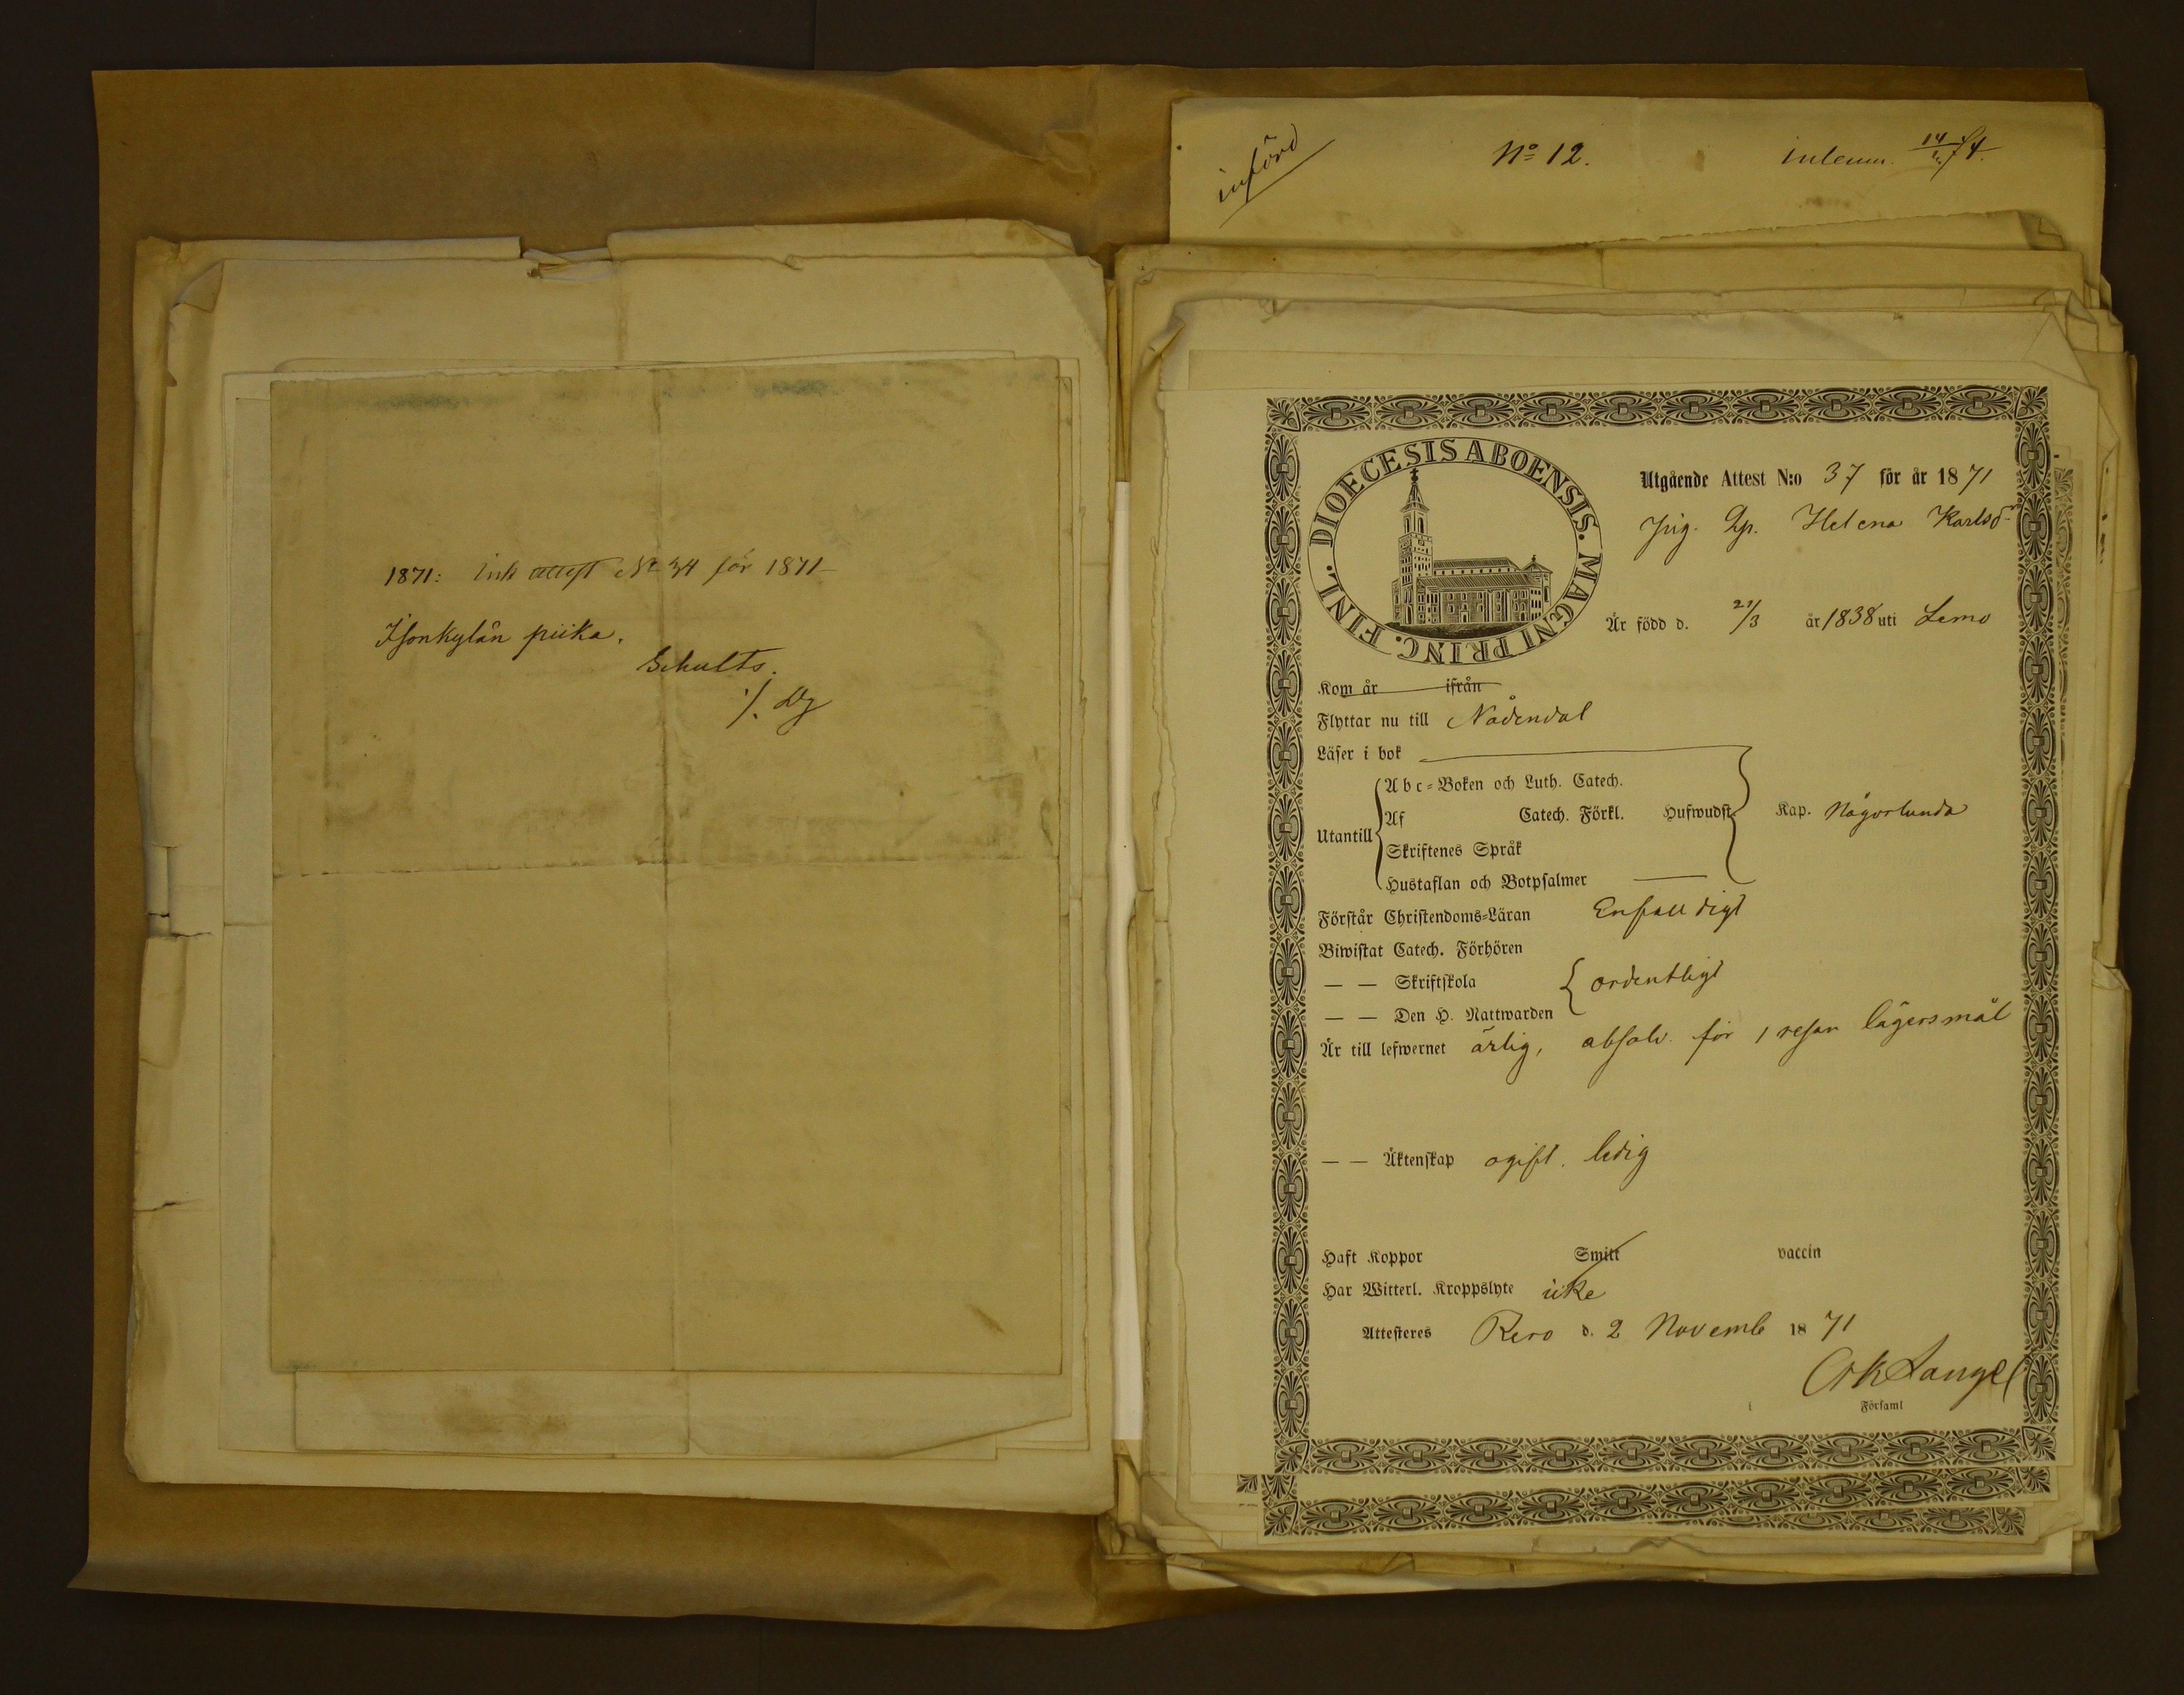 1871: Ink attest N:o 34 för 1871
Isonkylän piika.
Schults.
införd
No 12.
inlemn. 14/2 74.
DIOECESIS ABOENSIS. MAGNI PRINC. FINL.
Utgående Attest N:o 37 för år 1871
Pig. Helena Karlsd:r
Är född d. 21/3 år 1838 uti Lemo
Kom år ifrån
Flyttar nu till Nådendal
Läser i bok
Utantill
Abc-Boken och Luth. Catech.
Af Catech. Förkl. Hufwudst. Kap. Någorlunda
Skriftenes Språk
Hustaflan och Botpsalmer
Förstår Christendoms-Läran Enfalldigt
Biwistat Catech. Förhören
— — Skriftskola ordentligt
— — Den H. Nattwarden
Är till lefwernet ärlig, absolv. för 1 resan lägersmål
— — Äktenskap ogift. ledig
Haft Koppor Smitt vaccin
Har Witterl. Kroppslyte icke
Attesteres Rero d. 2 Novemb 1871
Langel
Församl